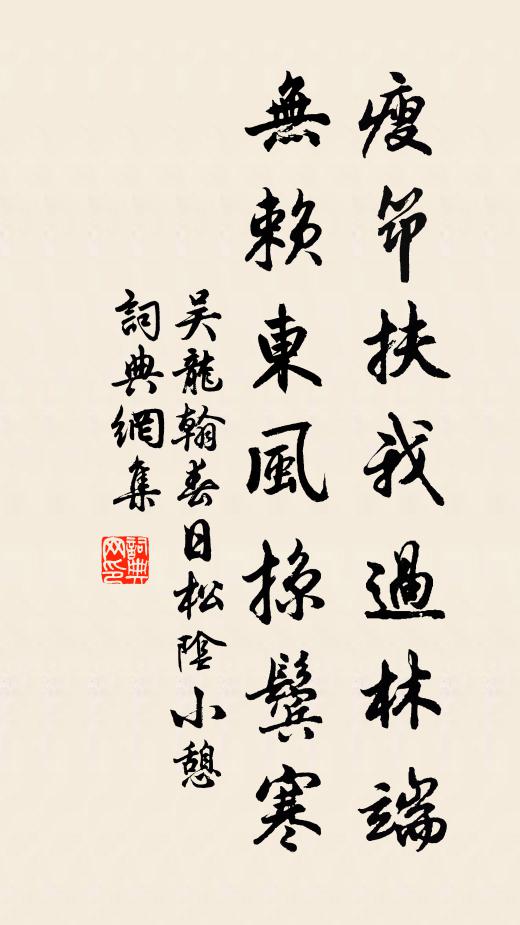 瘦笻扶我過林端
無賴東風掠鬢寒
吳龍翰春日松陰小憩
詞典網集
詞典网印